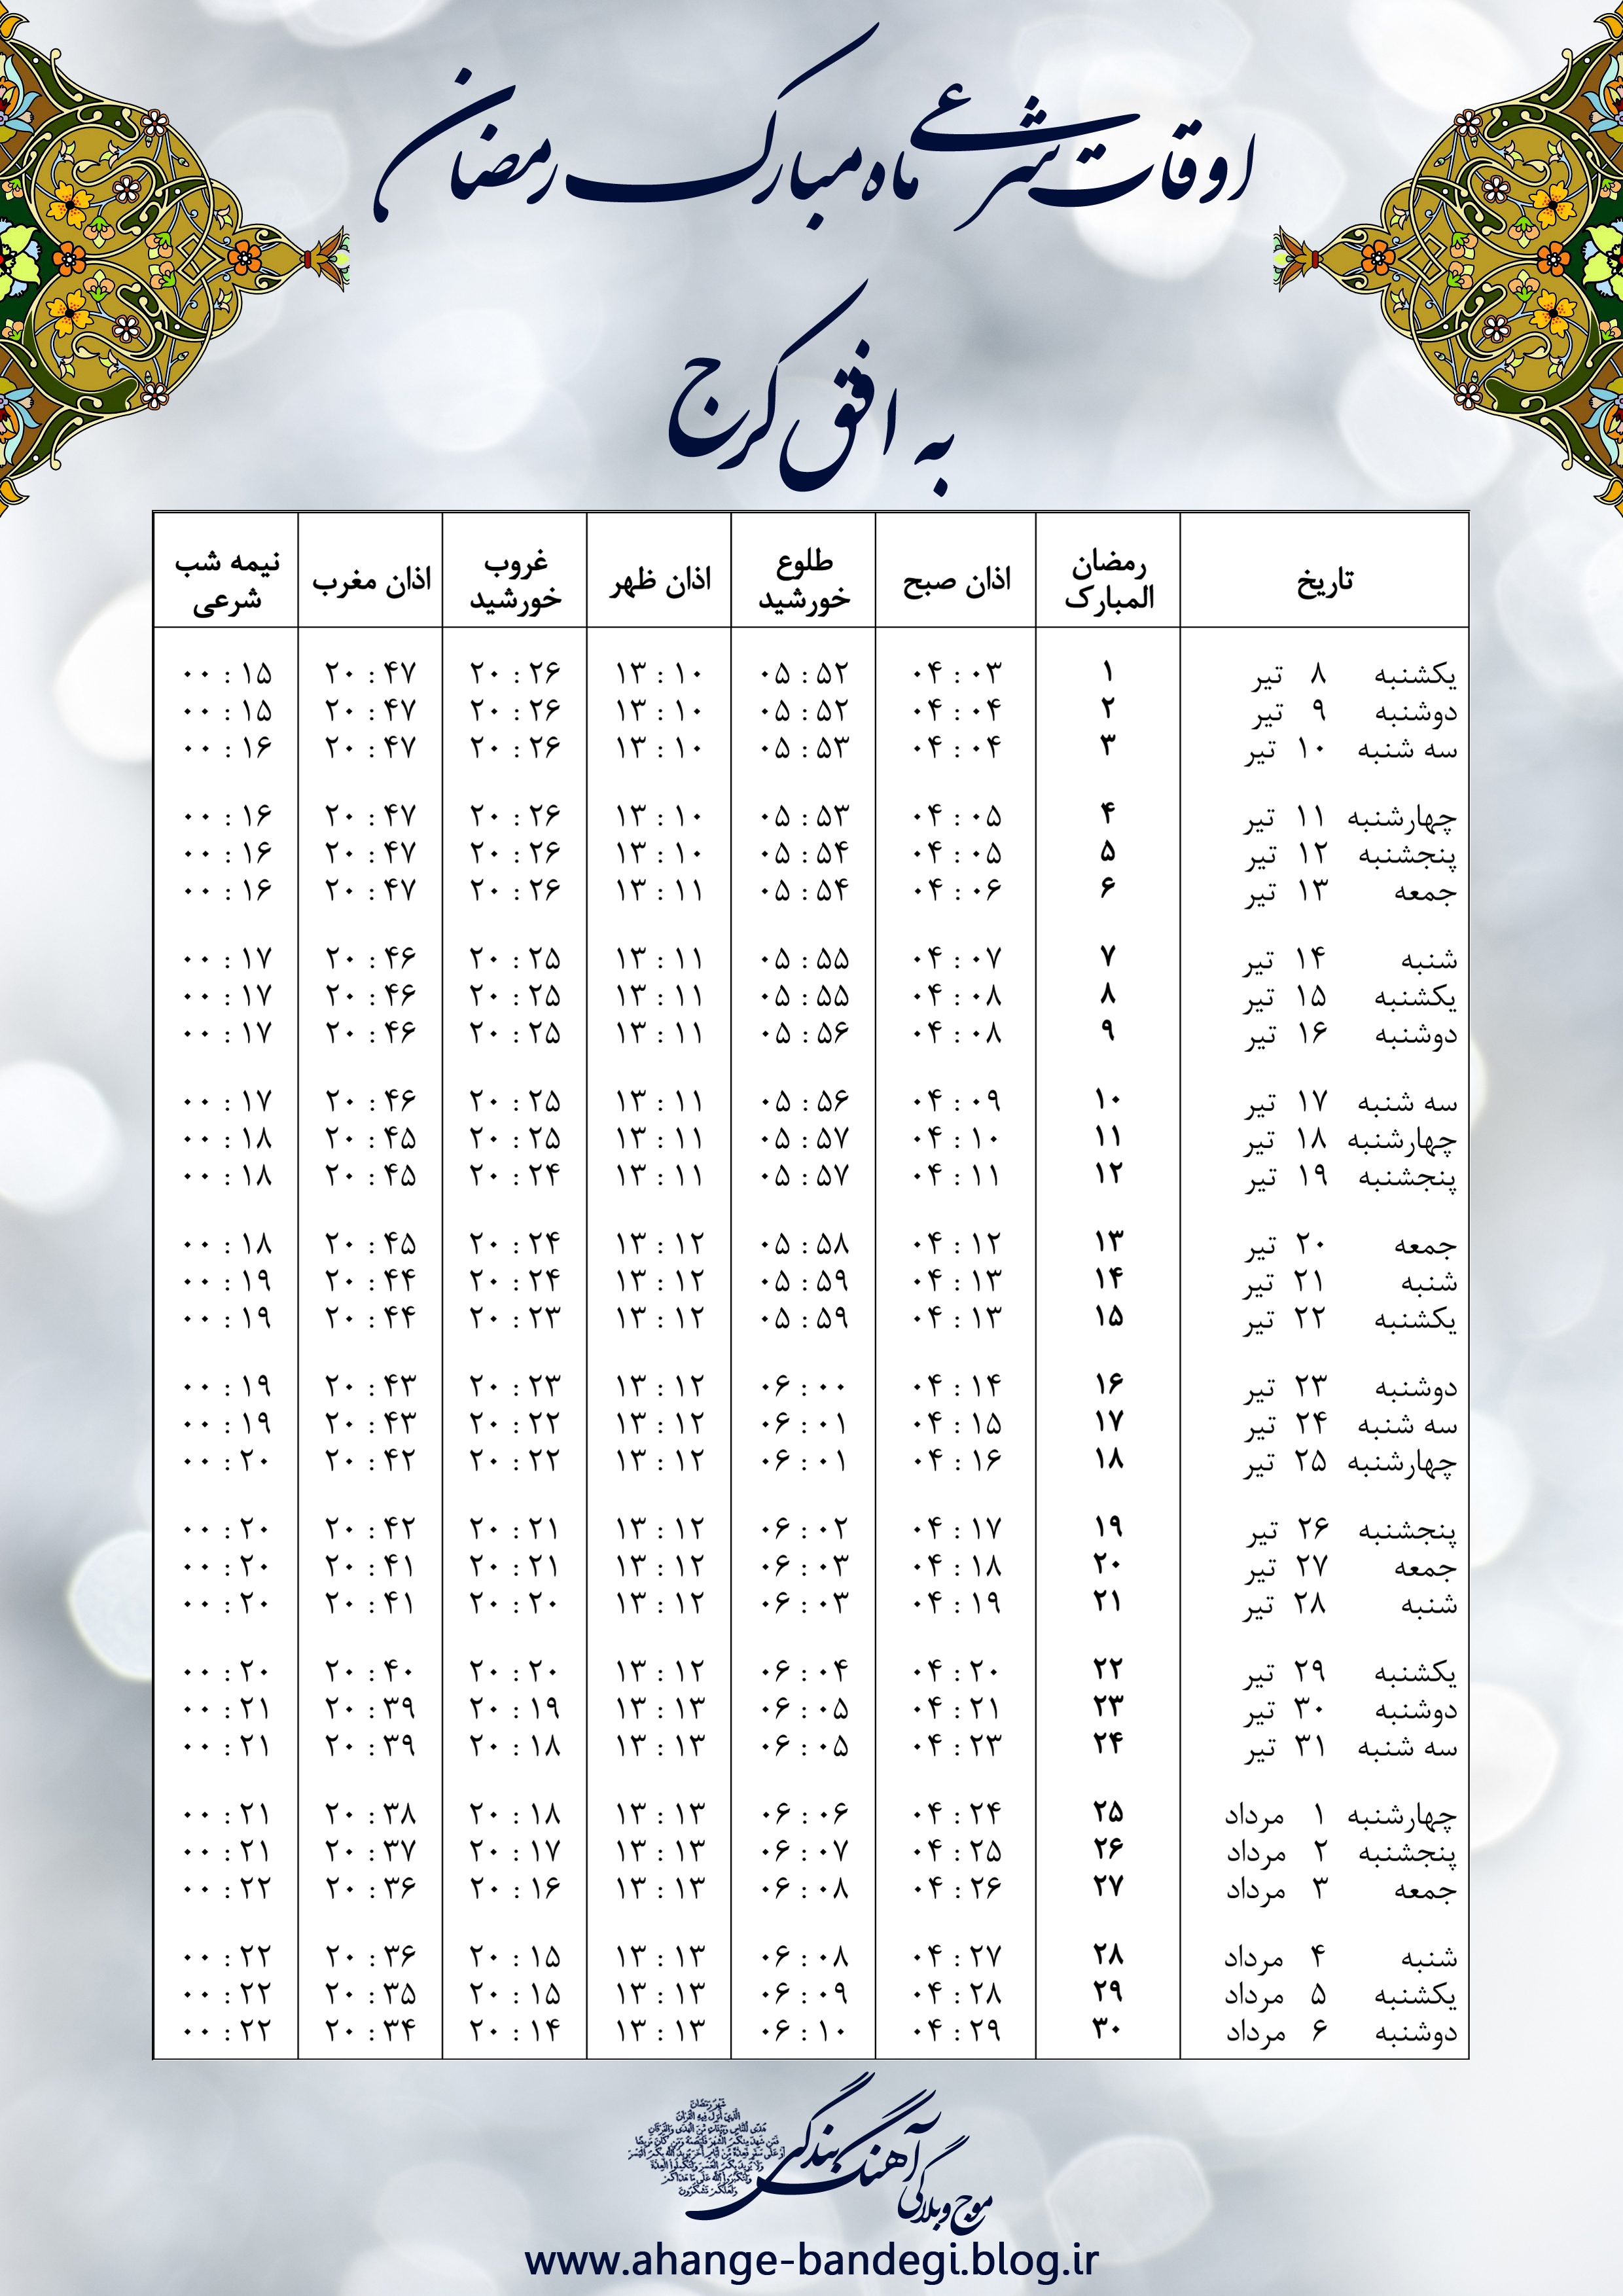 اوقات شرعی ماه مبارک رمضان
به افق کرج
تاریخ رمضان المبارک اذان صبح طلوع خورشید اذان ظهر غروب خورشید اذان مغرب نیمه شب شرعی
یکشنبه ۸ تیر ۱ ۰۴:۰۳ ۰۵:۵۲ ۱۳:۱۰ ۲۰:۲۶ ۲۰:۴۷ ۰۰:۱۵
دوشنبه ۹ تیر ۲ ۰۴:۰۴ ۰۵:۵۲ ۱۳:۱۰ ۲۰:۲۶ ۲۰:۴۷ ۰۰:۱۵
سه شنبه ۱۰ تیر ۳ ۰۴:۰۴ ۰۵:۵۳ ۱۳:۱۰ ۲۰:۲۶ ۲۰:۴۷ ۰۰:۱۶
چهارشنبه ۱۱ تیر ۴ ۰۴:۰۵ ۰۵:۵۳ ۱۳:۱۰ ۲۰:۲۶ ۲۰:۴۷ ۰۰:۱۶
پنجشنبه ۱۲ تیر ۵ ۰۴:۰۵ ۰۵:۵۴ ۱۳:۱۰ ۲۰:۲۶ ۲۰:۴۷ ۰۰:۱۶
جمعه ۱۳ تیر ۶ ۰۴:۰۶ ۰۵:۵۴ ۱۳:۱۱ ۲۰:۲۶ ۲۰:۴۷ ۰۰:۱۶
شنبه ۱۴ تیر ۷ ۰۴:۰۷ ۰۵:۵۵ ۱۳:۱۱ ۲۰:۲۵ ۲۰:۴۶ ۰۰:۱۷
یکشنبه ۱۵ تیر ۸ ۰۴:۰۸ ۰۵:۵۵ ۱۳:۱۱ ۲۰:۲۵ ۲۰:۴۶ ۰۰:۱۷
دوشنبه ۱۶ تیر ۹ ۰۴:۰۸ ۰۵:۵۶ ۱۳:۱۱ ۲۰:۲۵ ۲۰:۴۶ ۰۰:۱۷
سه شنبه ۱۷ تیر ۱۰ ۰۴:۰۹ ۰۵:۵۶ ۱۳:۱۱ ۲۰:۲۵ ۲۰:۴۶ ۰۰:۱۷
چهارشنبه ۱۸ تیر ۱۱ ۰۴:۱۰ ۰۵:۵۷ ۱۳:۱۱ ۲۰:۲۵ ۲۰:۴۵ ۰۰:۱۸
پنجشنبه ۱۹ تیر ۱۲ ۰۴:۱۱ ۰۵:۵۷ ۱۳:۱۱ ۲۰:۲۴ ۲۰:۴۵ ۰۰:۱۸
جمعه ۲۰ تیر ۱۳ ۰۴:۱۲ ۰۵:۵۸ ۱۳:۱۲ ۲۰:۲۴ ۲۰:۴۵ ۰۰:۱۸
شنبه ۲۱ تیر ۱۴ ۰۴:۱۳ ۰۵:۵۹ ۱۳:۱۲ ۲۰:۲۴ ۲۰:۴۴ ۰۰:۱۹
یکشنبه ۲۲ تیر ۱۵ ۰۴:۱۳ ۰۵:۵۹ ۱۳:۱۲ ۲۰:۲۳ ۲۰:۴۴ ۰۰:۱۹
دوشنبه ۲۳ تیر ۱۶ ۰۴:۱۴ ۰۶:۰۰ ۱۳:۱۲ ۲۰:۲۳ ۲۰:۴۳ ۰۰:۱۹
سه شنبه ۲۴ تیر ۱۷ ۰۴:۱۵ ۰۶:۰۱ ۱۳:۱۲ ۲۰:۲۲ ۲۰:۴۳ ۰۰:۱۹
چهارشنبه ۲۵ تیر ۱۸ ۰۴:۱۶ ۰۶:۰۱ ۱۳:۱۲ ۲۰:۲۲ ۲۰:۴۲ ۰۰:۲۰
پنجشنبه ۲۶ تیر ۱۹ ۰۴:۱۷ ۰۶:۰۲ ۱۳:۱۲ ۲۰:۲۱ ۲۰:۴۲ ۰۰:۲۰
جمعه ۲۷ تیر ۲۰ ۰۴:۱۸ ۰۶:۰۳ ۱۳:۱۲ ۲۰:۲۱ ۲۰:۴۱ ۰۰:۲۰
شنبه ۲۸ تیر ۲۱ ۰۴:۱۹ ۰۶:۰۳ ۱۳:۱۲ ۲۰:۲۰ ۲۰:۴۱ ۰۰:۲۰
یکشنبه ۲۹ تیر ۲۲ ۰۴:۲۰ ۰۶:۰۴ ۱۳:۱۲ ۲۰:۲۰ ۲۰:۴۰ ۰۰:۲۰
دوشنبه ۳۰ تیر ۲۳ ۰۴:۲۱ ۰۶:۰۵ ۱۳:۱۳ ۲۰:۱۹ ۲۰:۳۹ ۰۰:۲۱
سه شنبه ۳۱ تیر ۲۴ ۰۴:۲۳ ۰۶:۰۵ ۱۳:۱۳ ۲۰:۱۸ ۲۰:۳۹ ۰۰:۲۱
چهارشنبه ۱ مرداد ۲۵ ۰۴:۲۴ ۰۶:۰۶ ۱۳:۱۳ ۲۰:۱۸ ۲۰:۳۸ ۰۰:۲۱
پنجشنبه ۲ مرداد ۲۶ ۰۴:۲۵ ۰۶:۰۷ ۱۳:۱۳ ۲۰:۱۷ ۲۰:۳۷ ۰۰:۲۱
جمعه ۳ مرداد ۲۷ ۰۴:۲۶ ۰۶:۰۸ ۱۳:۱۳ ۲۰:۱۶ ۲۰:۳۶ ۰۰:۲۲
شنبه ۴ مرداد ۲۸ ۰۴:۲۷ ۰۶:۰۸ ۱۳:۱۳ ۲۰:۱۵ ۲۰:۳۶ ۰۰:۲۲
یکشنبه ۵ مرداد ۲۹ ۰۴:۲۸ ۰۶:۰۹ ۱۳:۱۳ ۲۰:۱۵ ۲۰:۳۵ ۰۰:۲۲
دوشنبه ۶ مرداد ۳۰ ۰۴:۲۹ ۰۶:۱۰ ۱۳:۱۳ ۲۰:۱۴ ۲۰:۳۴ ۰۰:۲۲
موج وبلاگی آهنگ بندگی
شَهْرُ رَمَضَانَ
الَّذِي أُنْزِلَ فِيهِ الْقُرْآنُ
هُدًى لِلنَّاسِ وَبَيِّنَاتٍ مِنَ الْهُدَى وَالْفُرْقَانِ
فَمَنْ شَهِدَ مِنْكُمُ الشَّهْرَ فَلْيَصُمْهُ وَمَنْ كَانَ مَرِيضًا
أَوْ عَلَى سَفَرٍ فَعِدَّةٌ مِنْ أَيَّامٍ أُخَرَ يُرِيدُ اللَّهُ بِكُمُ الْيُسْرَ
وَلَا يُرِيدُ بِكُمُ الْعُسْرَ وَلِتُكْمِلُوا الْعِدَّةَ
وَلِتُكَبِّرُوا اللَّهَ عَلَى مَا هَدَاكُمْ
وَلَعَلَّكُمْ تَشْكُرُونَ
www.ahange-bandegi.blog.ir